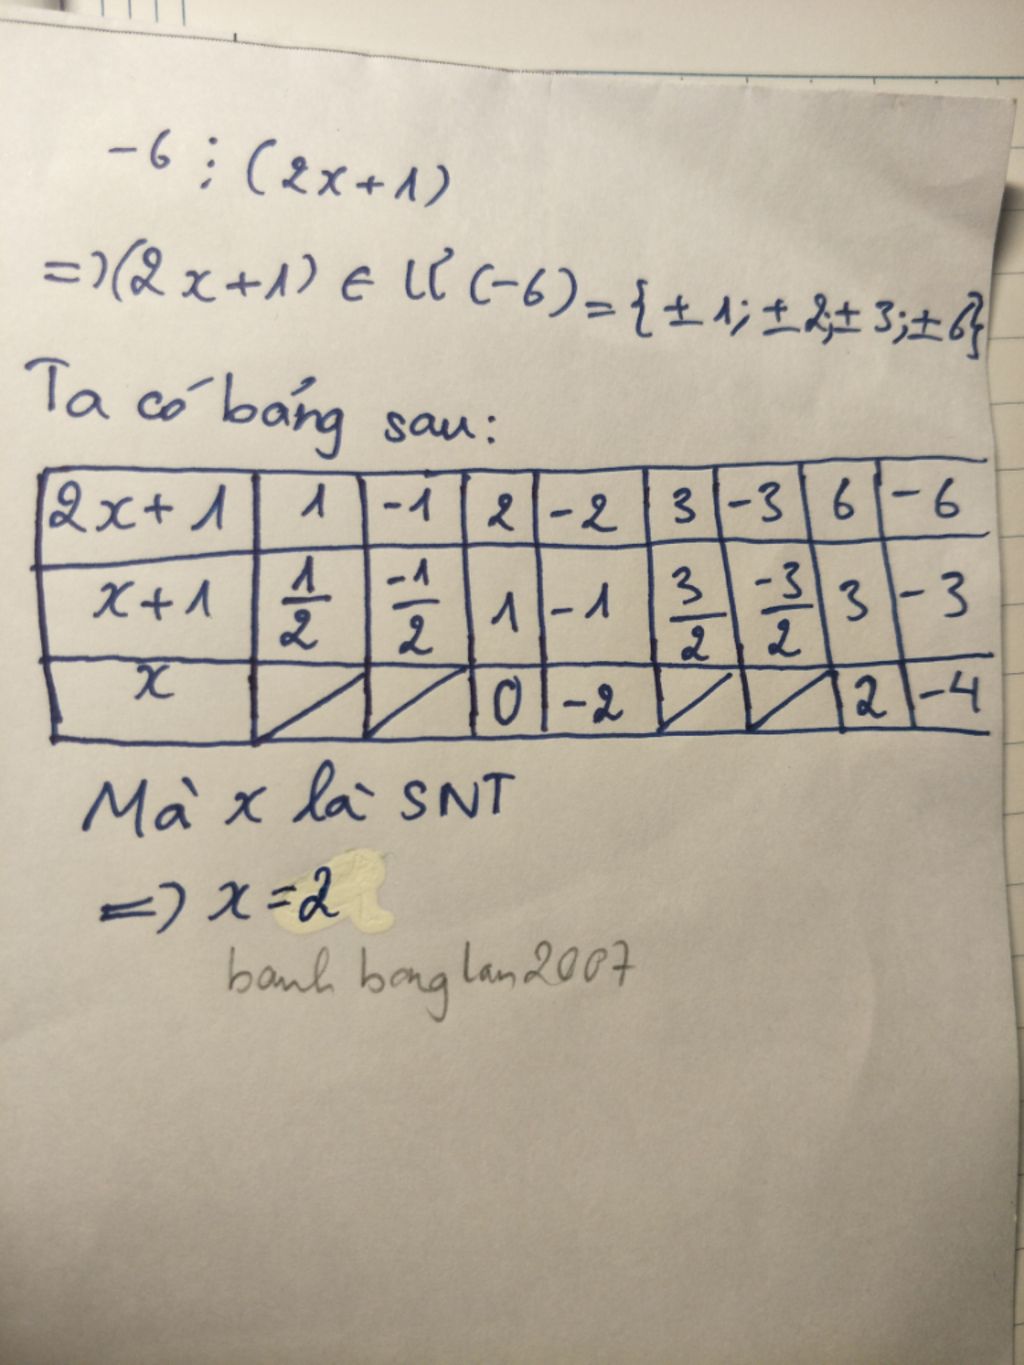 -6 ⋮ (2x+1)
=>(2x+1) ∈ Ư(-6)={±1;±2;±3;±6}
Ta có bảng sau:
2x+1 1 -1 2 -2 3 -3 6 -6
x+1 1/2 -1/2 1 -1 3/2 -3/2 3 -3
x 0 -2 2 -4
Mà x là SNT
=> x=2
banh bong lan2007